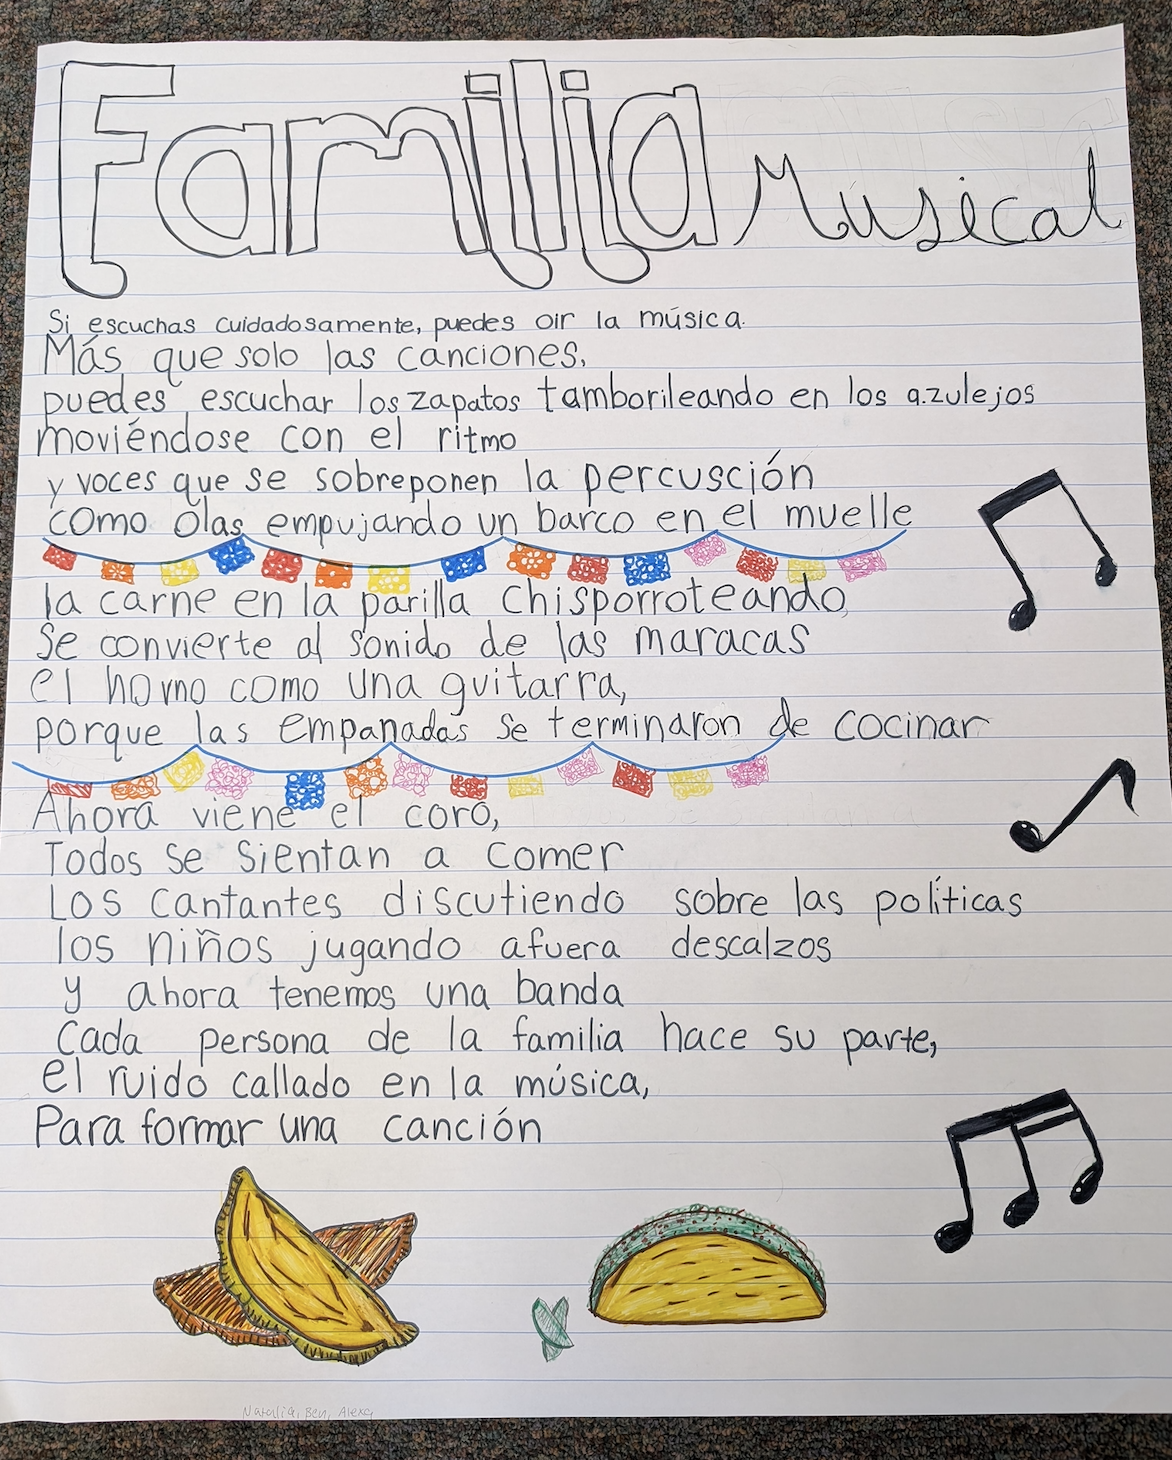 Familia Musical
Si escuchas cuidadosamente, puedes oir la música.
Más que solo las canciones,
puedes escuchar los zapatos tamborileando en los azulejos
moviéndose con el ritmo
y voces que se sobreponen la percusción
como olas empujando un barco en el muelle
la carne en la parilla chisporroteando,
se convierte al sonido de las maracas
el horno como una guitarra,
porque las empanadas se terminaron de cocinar
Ahora viene el coro,
Todos se sientan a comer
Los cantantes discutiendo sobre las políticas
los niños jugando afuera descalzos
y ahora tenemos una banda
Cada persona de la familia hace su parte,
el ruido callado en la música,
Para formar una canción
Natalia, Ben, Alexa